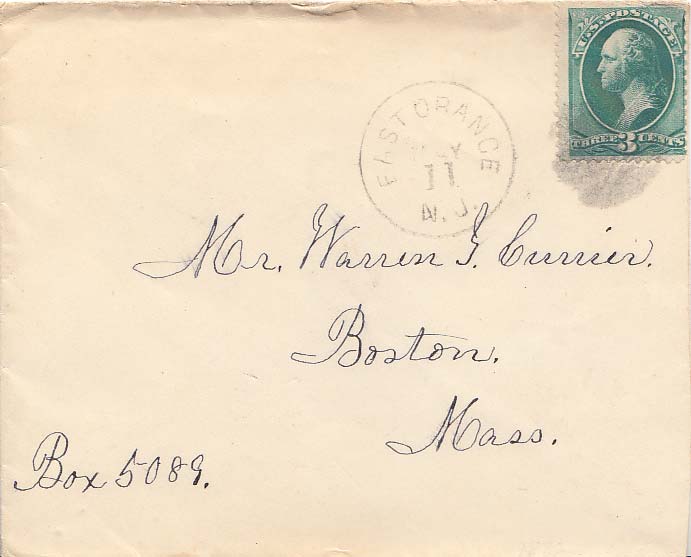 U.S. POSTAGE
THREE 3 CENTS
EAST ORANGE
11
N.J.
Mr. Warren F. Currier.
Boston.
Mass.
Box 5089.